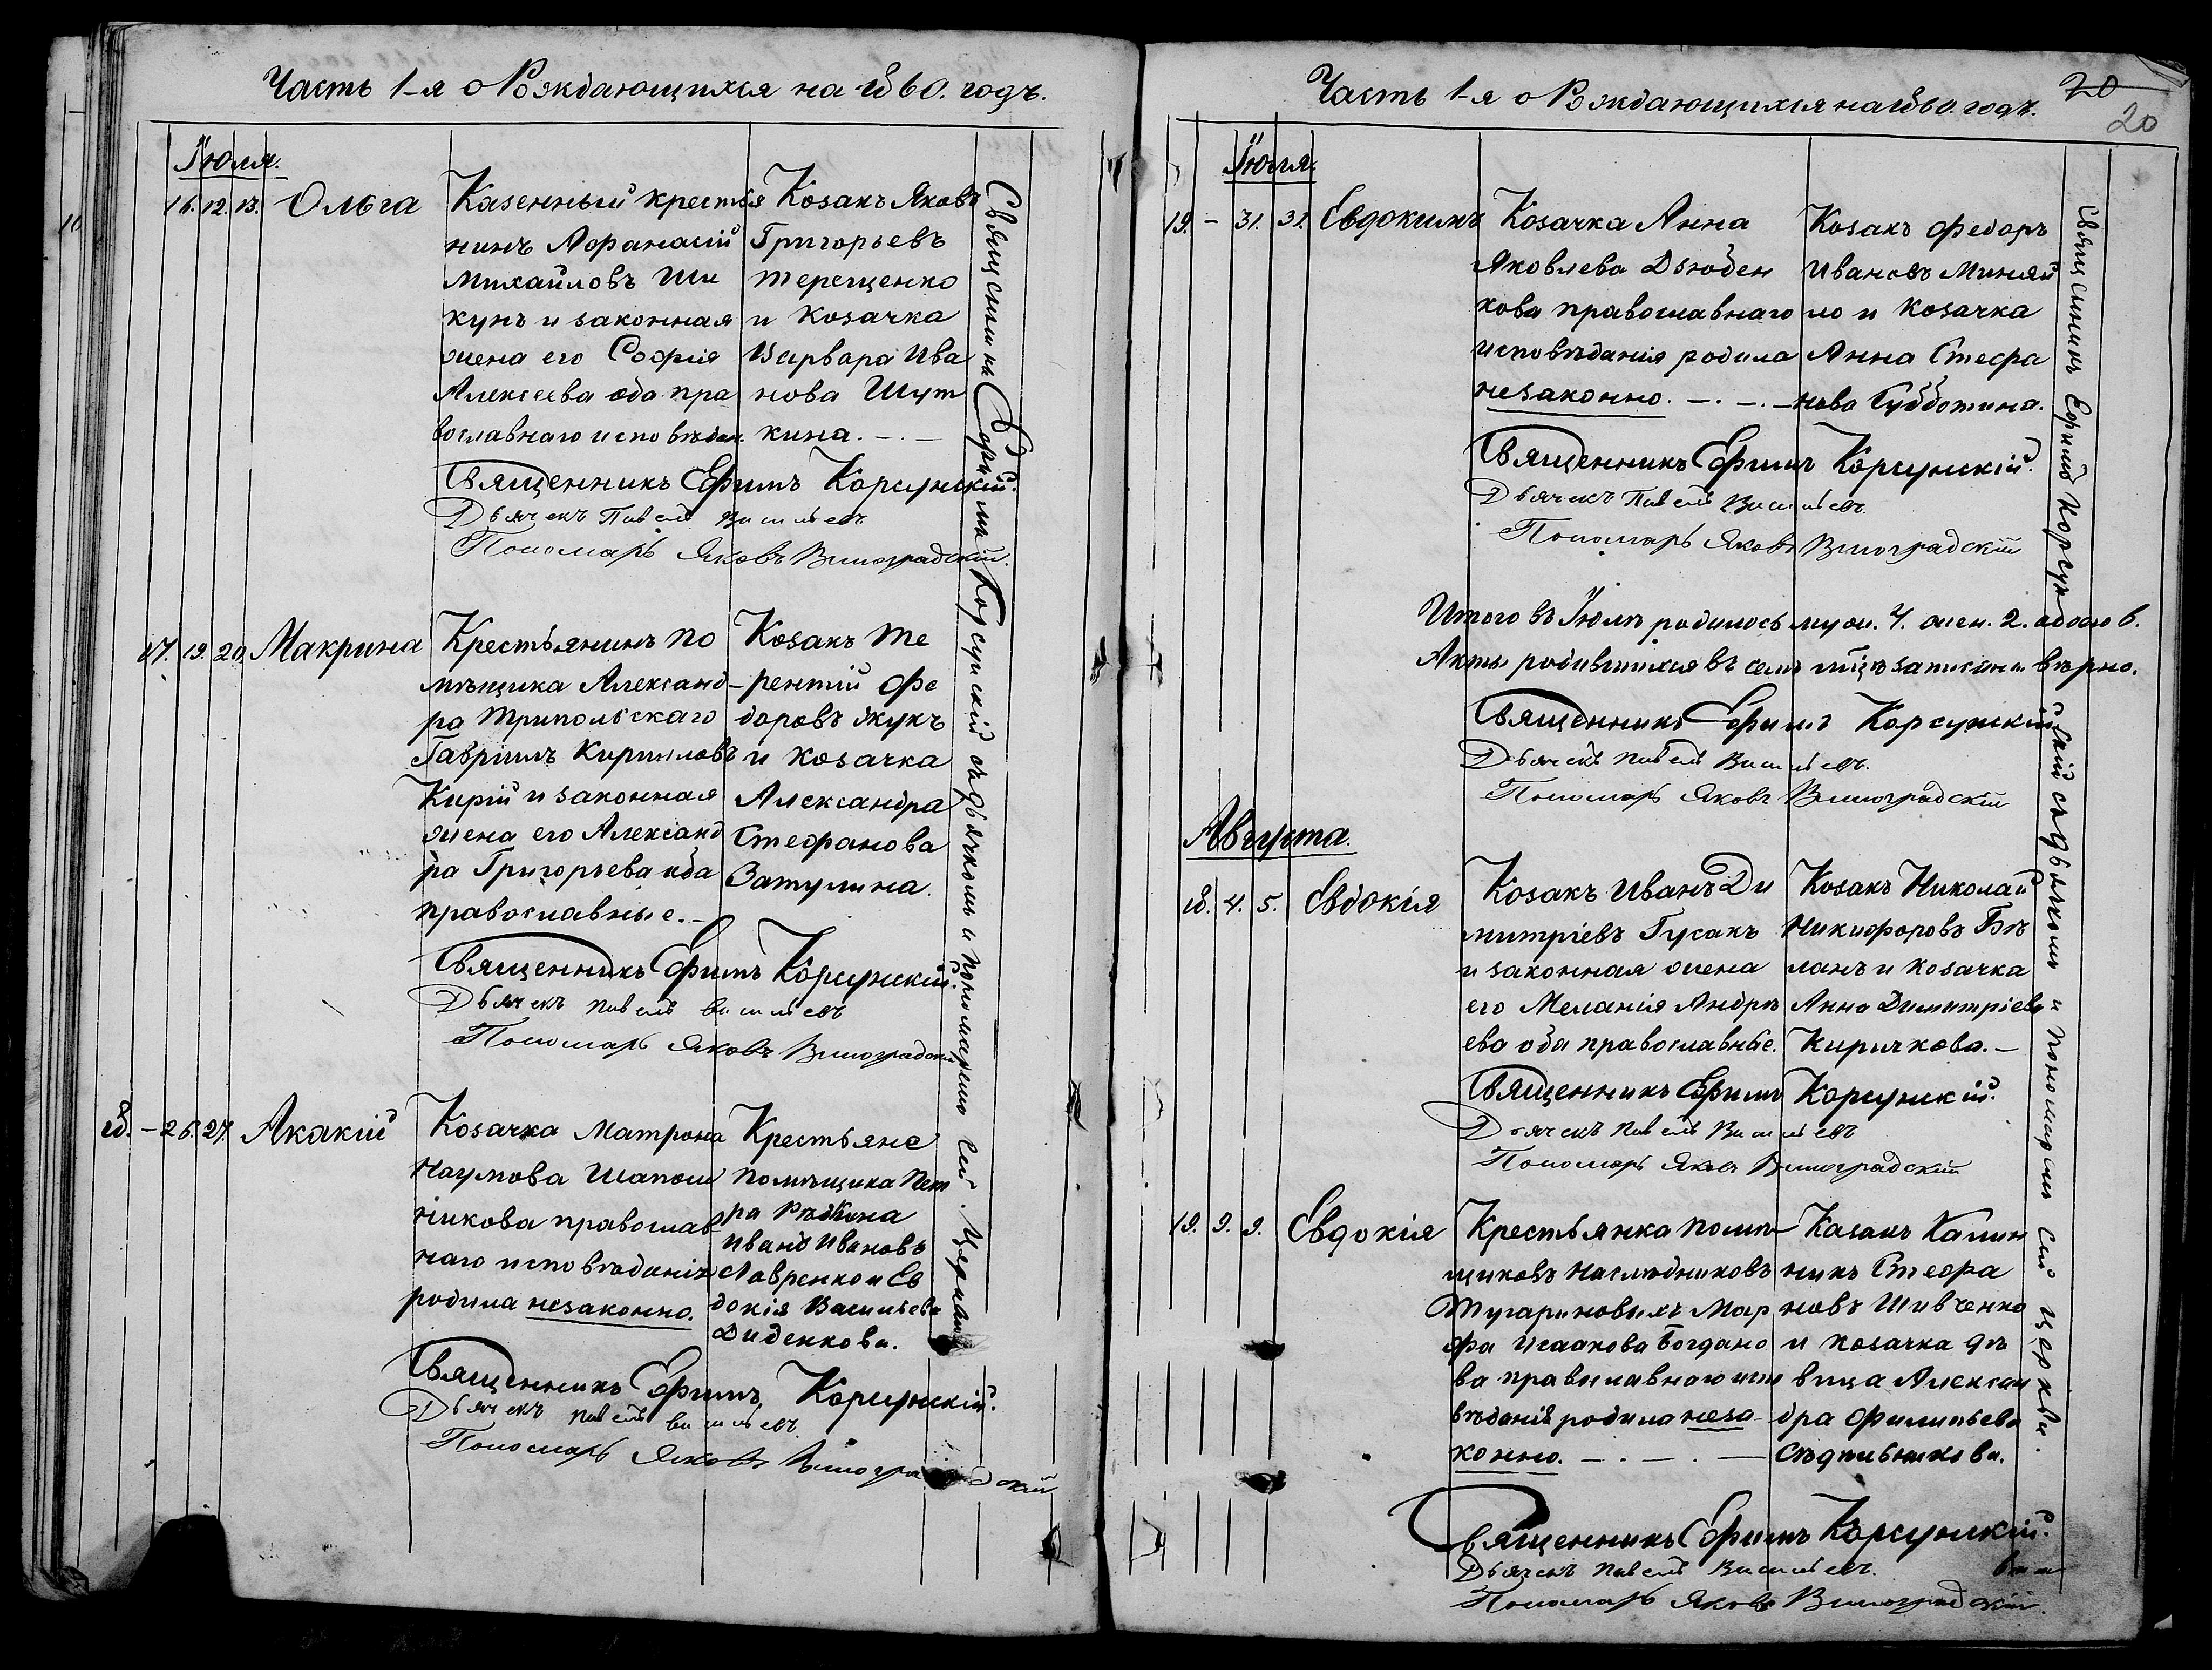 Часть 1-я о Рождающихся на 1860. годъ.
Іюля.
16. 12. 13. Ольга
Казенный крестья
нинъ Афанасій
Михайловъ Ши
кунъ и законная
жена его Софія
Алексеева оба пра
вославнаго исповѣдан.
Козакъ Яковъ
Григорьевъ
Терещенко
и козачка
Варвара Ива
нова Шут
кина. — . —
Священникъ Ефимъ Корсунскій.
Дьячекъ Павелъ Васильевъ
Пономарь Яковъ Виноградскій.
17. 19. 20. Макрина
Крестьянинъ по
мѣщика Александ
ра Трипольскаго
Гавріилъ Кирилловъ
Кирій и законная
жена его Александ
ра Григорьева оба
православные. —
Козакъ Те
рентій Фе
доровъ Жукъ
и козачка
Александра
Стефанова
Затулина.
Священникъ Ефимъ Корсунскій.
Дьячекъ Павелъ Васильевъ
Пономарь Яковъ Виноградскій
18. — 26. 27. Акакій
Козачка Матрона
Наумова Шапош
никова православ
наго исповѣданія
родила незаконно.
Крестьяне
помѣщика Пет
ра
Иванъ Ивановъ
Лавренко и Ев
докія Васильева
Диденкова.
Священникъ Ефимъ Корсунскій.
Дьячекъ Павелъ Васильевъ
Пономарь Яковъ Виноградскій
Священникъ Ефимъ Корсунскій съ дьячкомъ и пономаремъ сей Церкви
Часть 1-я о Рождающихся на 1860. годъ.
20
20
Іюля.
19. — 31. 31. Евдокимъ
Козачка Анна
Яковлева Дзюбен
кова православнаго
исповѣданія родила
незаконно. — . — . —
Козакъ Федоръ
Ивановъ Миняй
ло и козачка
Анна Стефа
нова Субботина.
Священникъ Ефимъ Корсунскій.
Дьячекъ Павелъ Васильевъ.
Пономарь Яковъ Виноградскій
Итого въ Іюлѣ родилось муж. 4. жен. 2. обоего 6.
Акты родившихся въ семъ мѣцѣ записаны вѣрно.
Священникъ Ефимъ Корсунскій
Дьячекъ Павелъ Васильевъ.
Пономарь Яковъ Виноградскій
Августа.
18. 4. 5. Евдокія
Козакъ Иванъ Ди
митріевъ Гусакъ
и законная жена
его Меланія Андрѣ
ева оба православные.
Козакъ Николай
Никифоровъ Бѣ
ланъ и козачка
Анна Димитріева
Киричкова. —
Священникъ Ефимъ Корсунскій.
Дьячекъ Павелъ Васильевъ
Пономарь Яковъ Виноградскій
19. 9. 9. Евдокія
Крестьянка помѣ
щиковъ наслѣдниковъ
Тугариновыхъ Мар
фа Исаакова Богдано
ва православнаго испо
вѣданія родила неза
конно. — . — . —
Казакъ Калин
никъ Стефа
новъ Шивченко
и козачка дѣ
вица Алексан
дра Филипьева
Сѣдлишникова.
Священникъ Ефимъ Корсунскій.
Дьячекъ Павелъ Васильевъ.
Пономарь Яковъ Виноградскій.
Священникъ Ефимъ Корсунскій съ дьячкомъ и пономаремъ сей церкви.